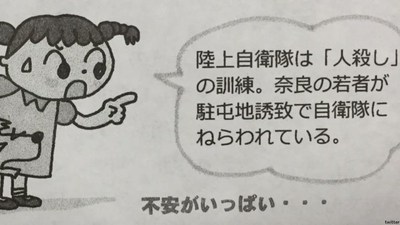 陸上自衛隊は「人殺し」
の訓練。奈良の若者が
駐屯地誘致で自衛隊に
ねらわれている。
不安がいっぱい・・・
twitter